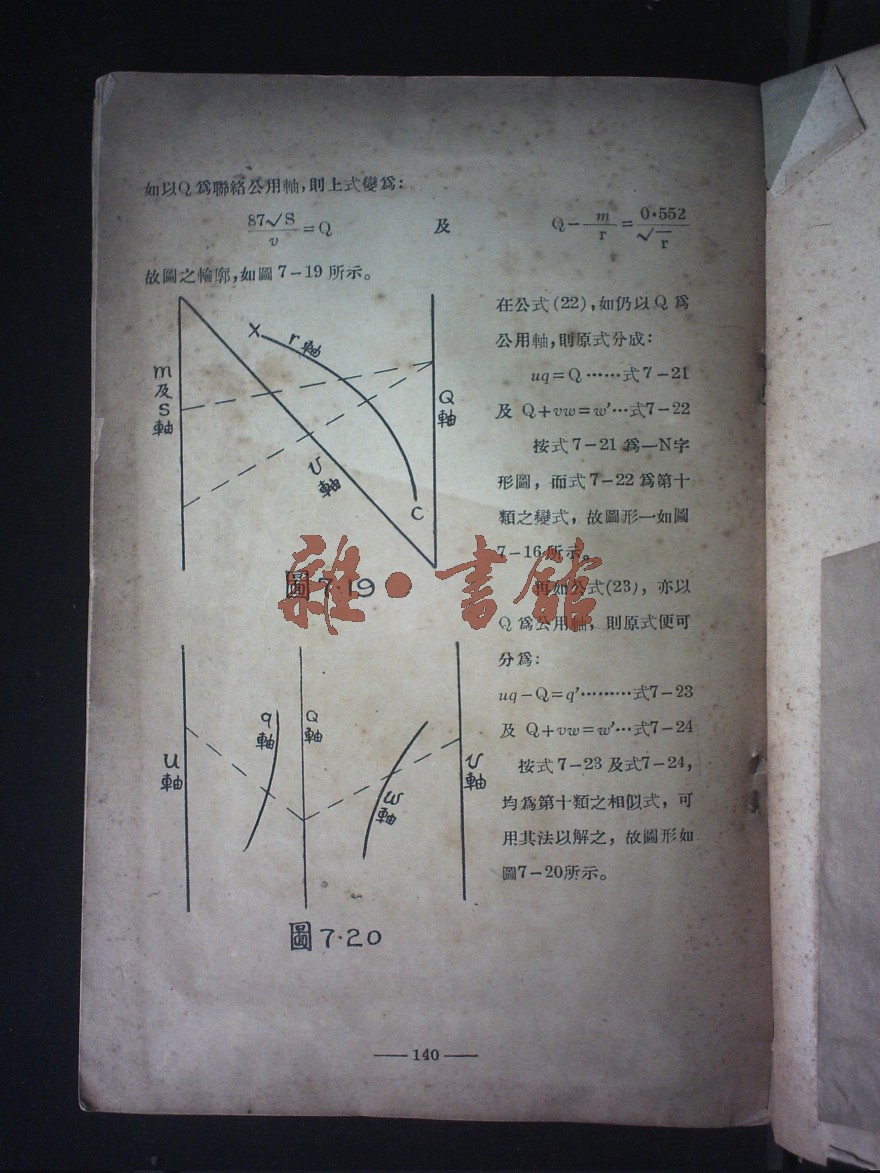 如以Q為聯絡公用軸,則上式變為:
87√S/v=Q 及 Q-m/r=0·552/√r
故圖之輪廓,如圖7-19所示。
X
r軸
m及S軸
Q軸
υ軸
C
圖7·19
在公式(22),如仍以Q為
公用軸,則原式分成:
uq=Q……式7-21
及 Q+vw=w′…式7-22
按式7-21為一N字
形圖,而式7-22為第十
類之變式,故圖形一如圖
7-16所示。
再如公式(23),亦以
Q為公用軸,則原式便可
分為:
uq-Q=q′………式7-23
及 Q+vw=w′…式7-24
按式7-23及式7-24,
均為第十類之相似式,可
用其法以解之,故圖形如
圖7-20所示。
u軸
q軸
Q軸
w軸
υ軸
圖7·20
雜·書館
——140——